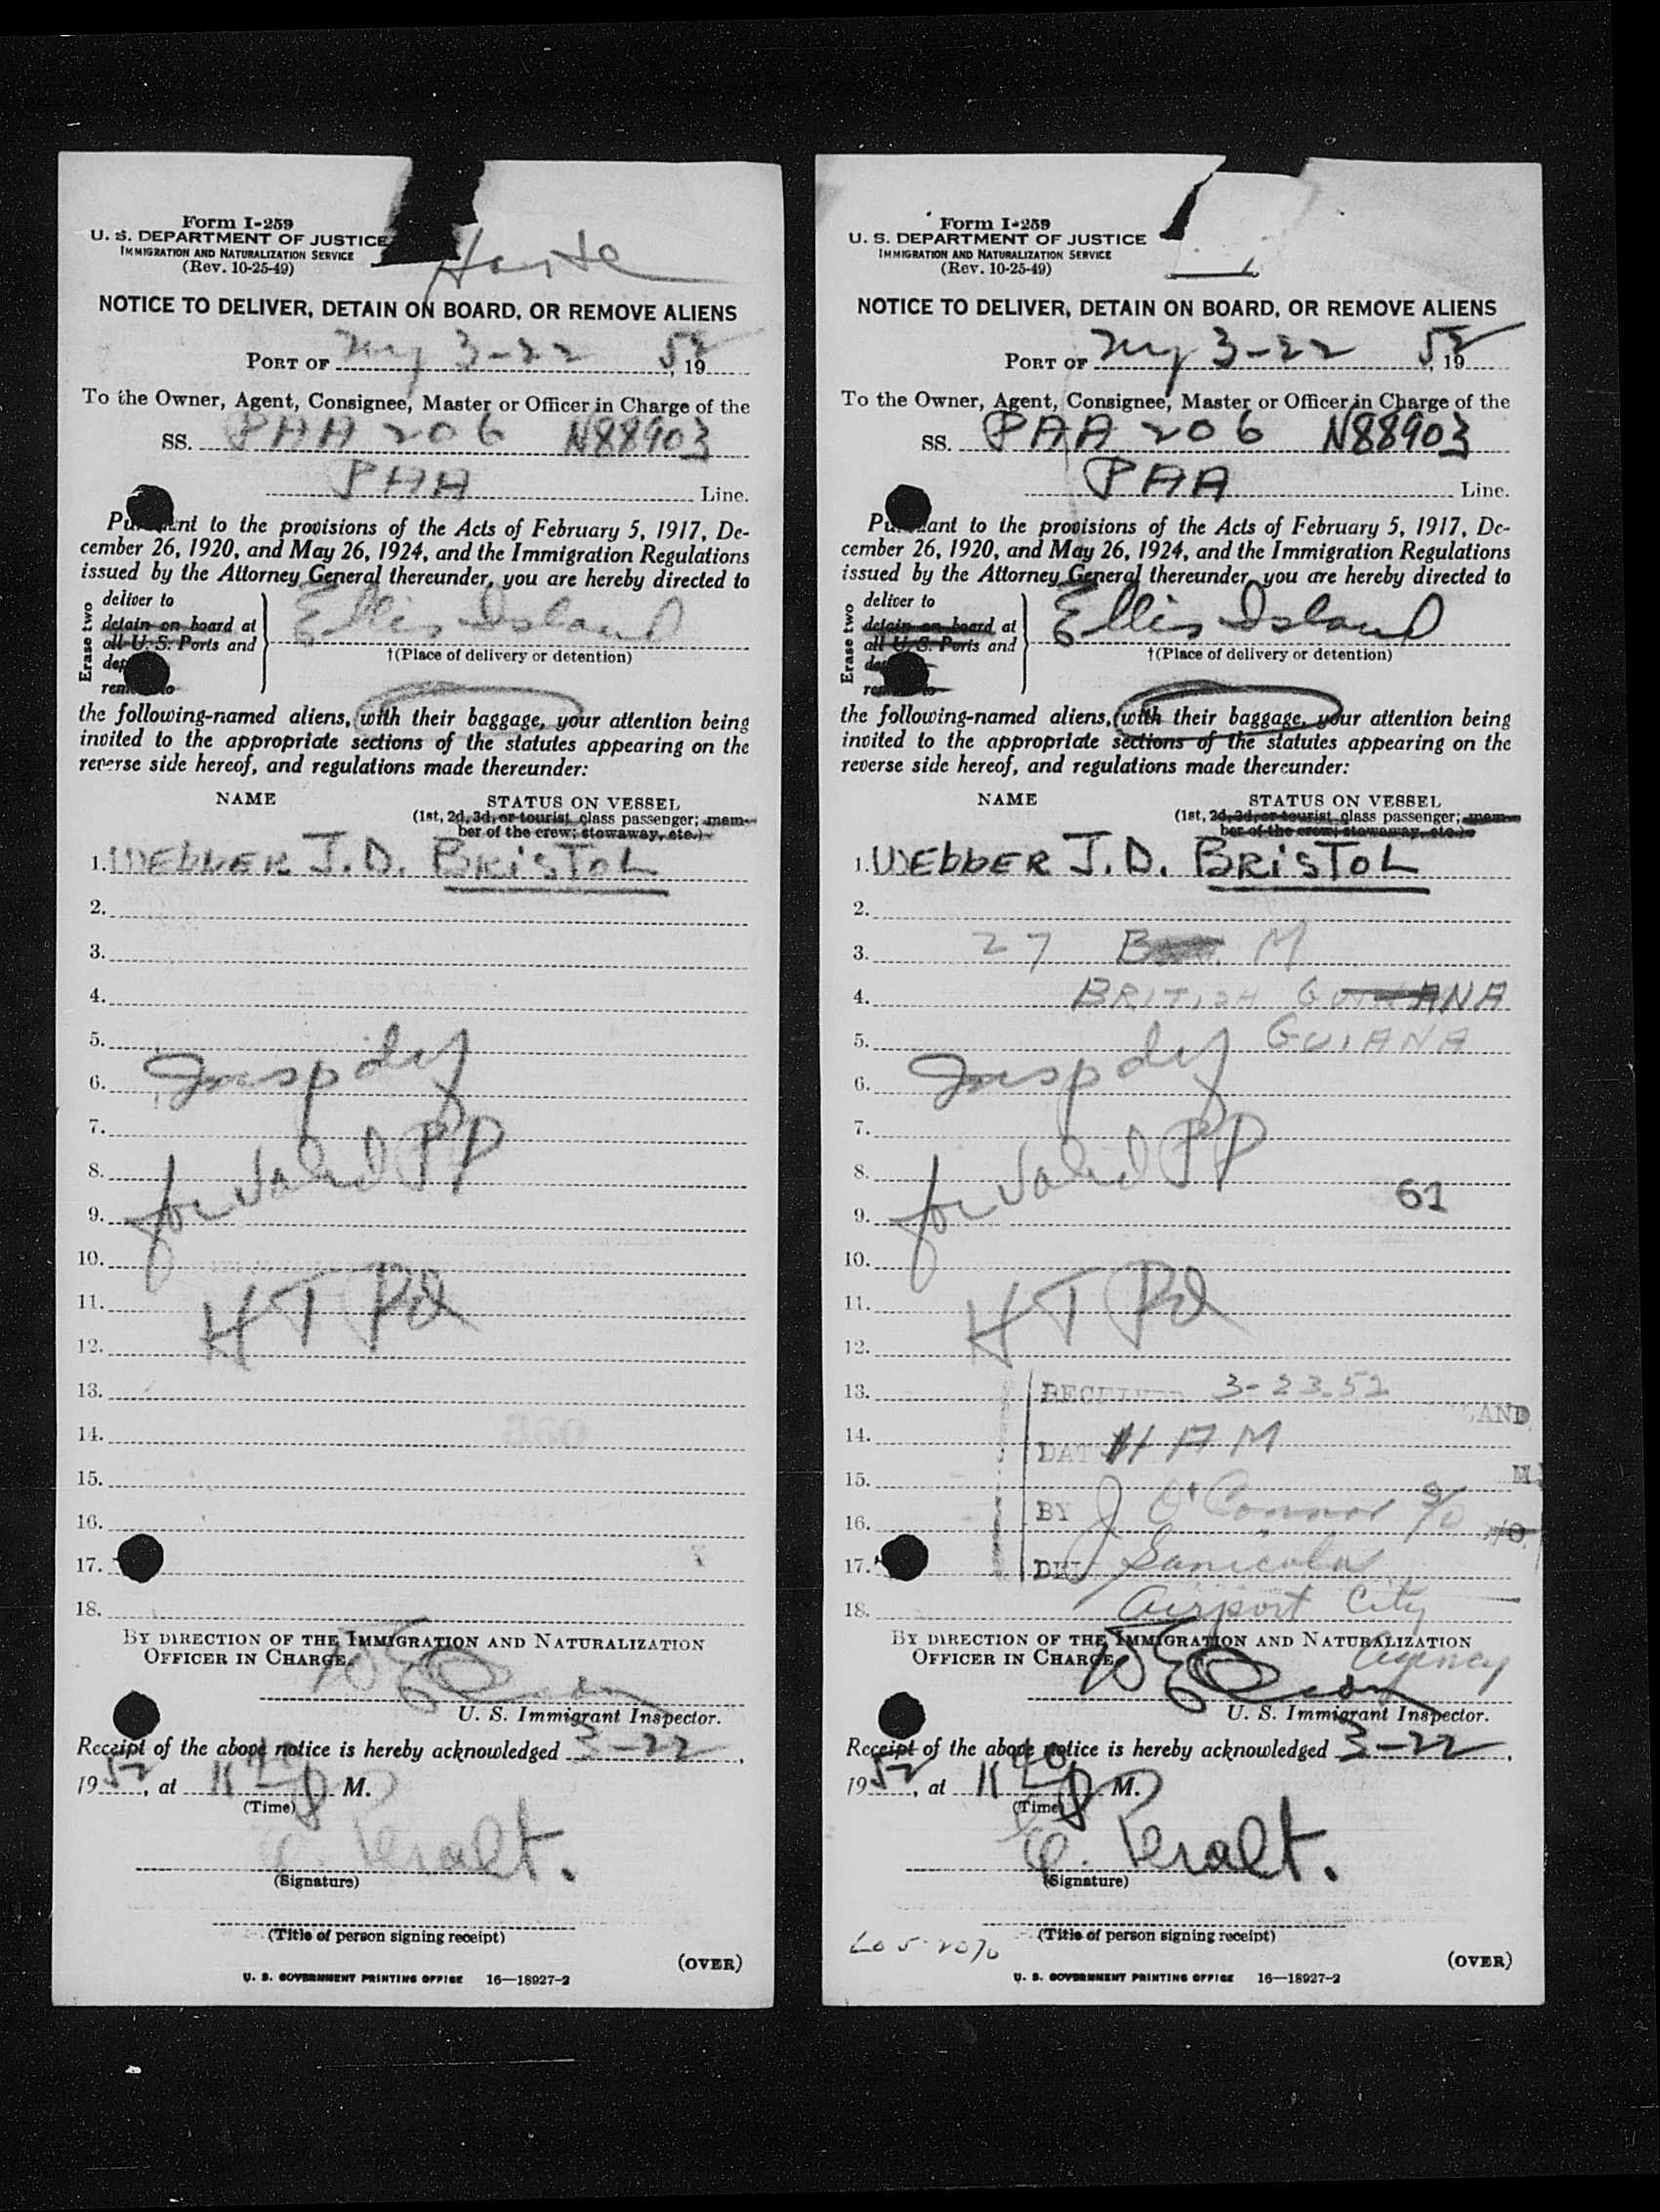 Form I-259
U. S. DEPARTMENT OF JUSTICE
IMMIGRATION AND NATURALIZATION SERVICE
(Rev. 10-25-49)
NOTICE TO DELIVER, DETAIN ON BOARD, OR REMOVE ALIENS
PORT OF NY 3-22 52, 19
To the Owner, Agent, Consignee, Master or Officer in Charge of the
SS. PAA 206 N88903
PAA Line.
Pu nt to the provisions of the Acts of February 5, 1917, De-
cember 26, 1920, and May 26, 1924, and the Immigration Regulations
issued by the Attorney General thereunder, you are hereby directed to
Erase two
deliver to
detain on board at
all U. S. Ports and
Ellis Island
†(Place of delivery or detention)
the following-named aliens, with their baggage, your attention being
invited to the appropriate sections of the statutes appearing on the
reverse side hereof, and regulations made thereunder:
NAME STATUS ON VESSEL
(1st, 2d, 3d, or tourist class passenger; mem-
ber of the crew; stowaway, etc.)
1. WEbbER J.D. BRiSTOL
2.
3.
4.
5.
6. Insp dly
7.
8. for valid PP
9.
10.
11. HT Pd
12.
13.
14.
15.
16.
17.
18.
BY DIRECTION OF THE IMMIGRATION AND NATURALIZATION
OFFICER IN CHARGE.
U. S. Immigrant Inspector.
Receipt of the above notice is hereby acknowledged 3-22,
1952, at 11 40 P M.
(Time)
E. Peralt.
(Signature)
(Title of person signing receipt)
(OVER)
U. S. GOVERNMENT PRINTING OFFICE 16—18927-2
Form I-259
U. S. DEPARTMENT OF JUSTICE
IMMIGRATION AND NATURALIZATION SERVICE
(Rev. 10-25-49)
NOTICE TO DELIVER, DETAIN ON BOARD, OR REMOVE ALIENS
PORT OF NY 3-22 52, 19
To the Owner, Agent, Consignee, Master or Officer in Charge of the
SS. PAA 206 N88903
PAA Line.
Pu ant to the provisions of the Acts of February 5, 1917, De-
cember 26, 1920, and May 26, 1924, and the Immigration Regulations
issued by the Attorney General thereunder, you are hereby directed to
Erase two
deliver to
detain on board at
all U. S. Ports and
Ellis Island
†(Place of delivery or detention)
the following-named aliens, with their baggage, your attention being
invited to the appropriate sections of the statutes appearing on the
reverse side hereof, and regulations made thereunder:
NAME STATUS ON VESSEL
(1st, 2d, 3d, or tourist class passenger; mem-
ber of the crew; stowaway, etc.)
1. WEbbER J.D. BRiSTOL
2.
3. 27 M
4. BRITISH
5. GUIANA
6. Insp dly
7.
8. for valid PP
61
9.
10.
11. HT Pd
12.
13. RECEIVED 3-23-52
14. DATE 11 AM
15.
16. BY J O'Connor
17. DEL Sanicola
18. Airport City
Agency
BY DIRECTION OF THE IMMIGRATION AND NATURALIZATION
OFFICER IN CHARGE.
U. S. Immigrant Inspector.
Receipt of the above notice is hereby acknowledged 3-22,
1952, at 11 40 P M.
(Time)
E. Peralt.
(Signature)
(Title of person signing receipt)
(OVER)
U. S. GOVERNMENT PRINTING OFFICE 16—18927-2